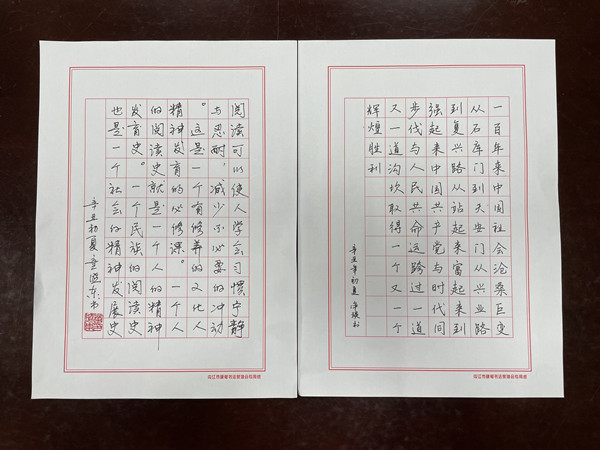 一百年来中国社会沧桑巨变
从石库门到天安门从兴业路
到复兴路从站起来富起来到
强起来中国共产党与时代同
步伐与人民共命运跨过一道
又一道沟坎取得一个又一个
辉煌胜利
辛丑年初夏 书
阅读可以使人学会习惯宁静
与忍耐，减少不必要的冲动
“这是一个有修养的文化人
精神发育的必修课。”一个人
的阅读史就是一个人的精神
发育史。一个民族的阅读史
也是一个社会的精神发展史
辛丑初夏 东书